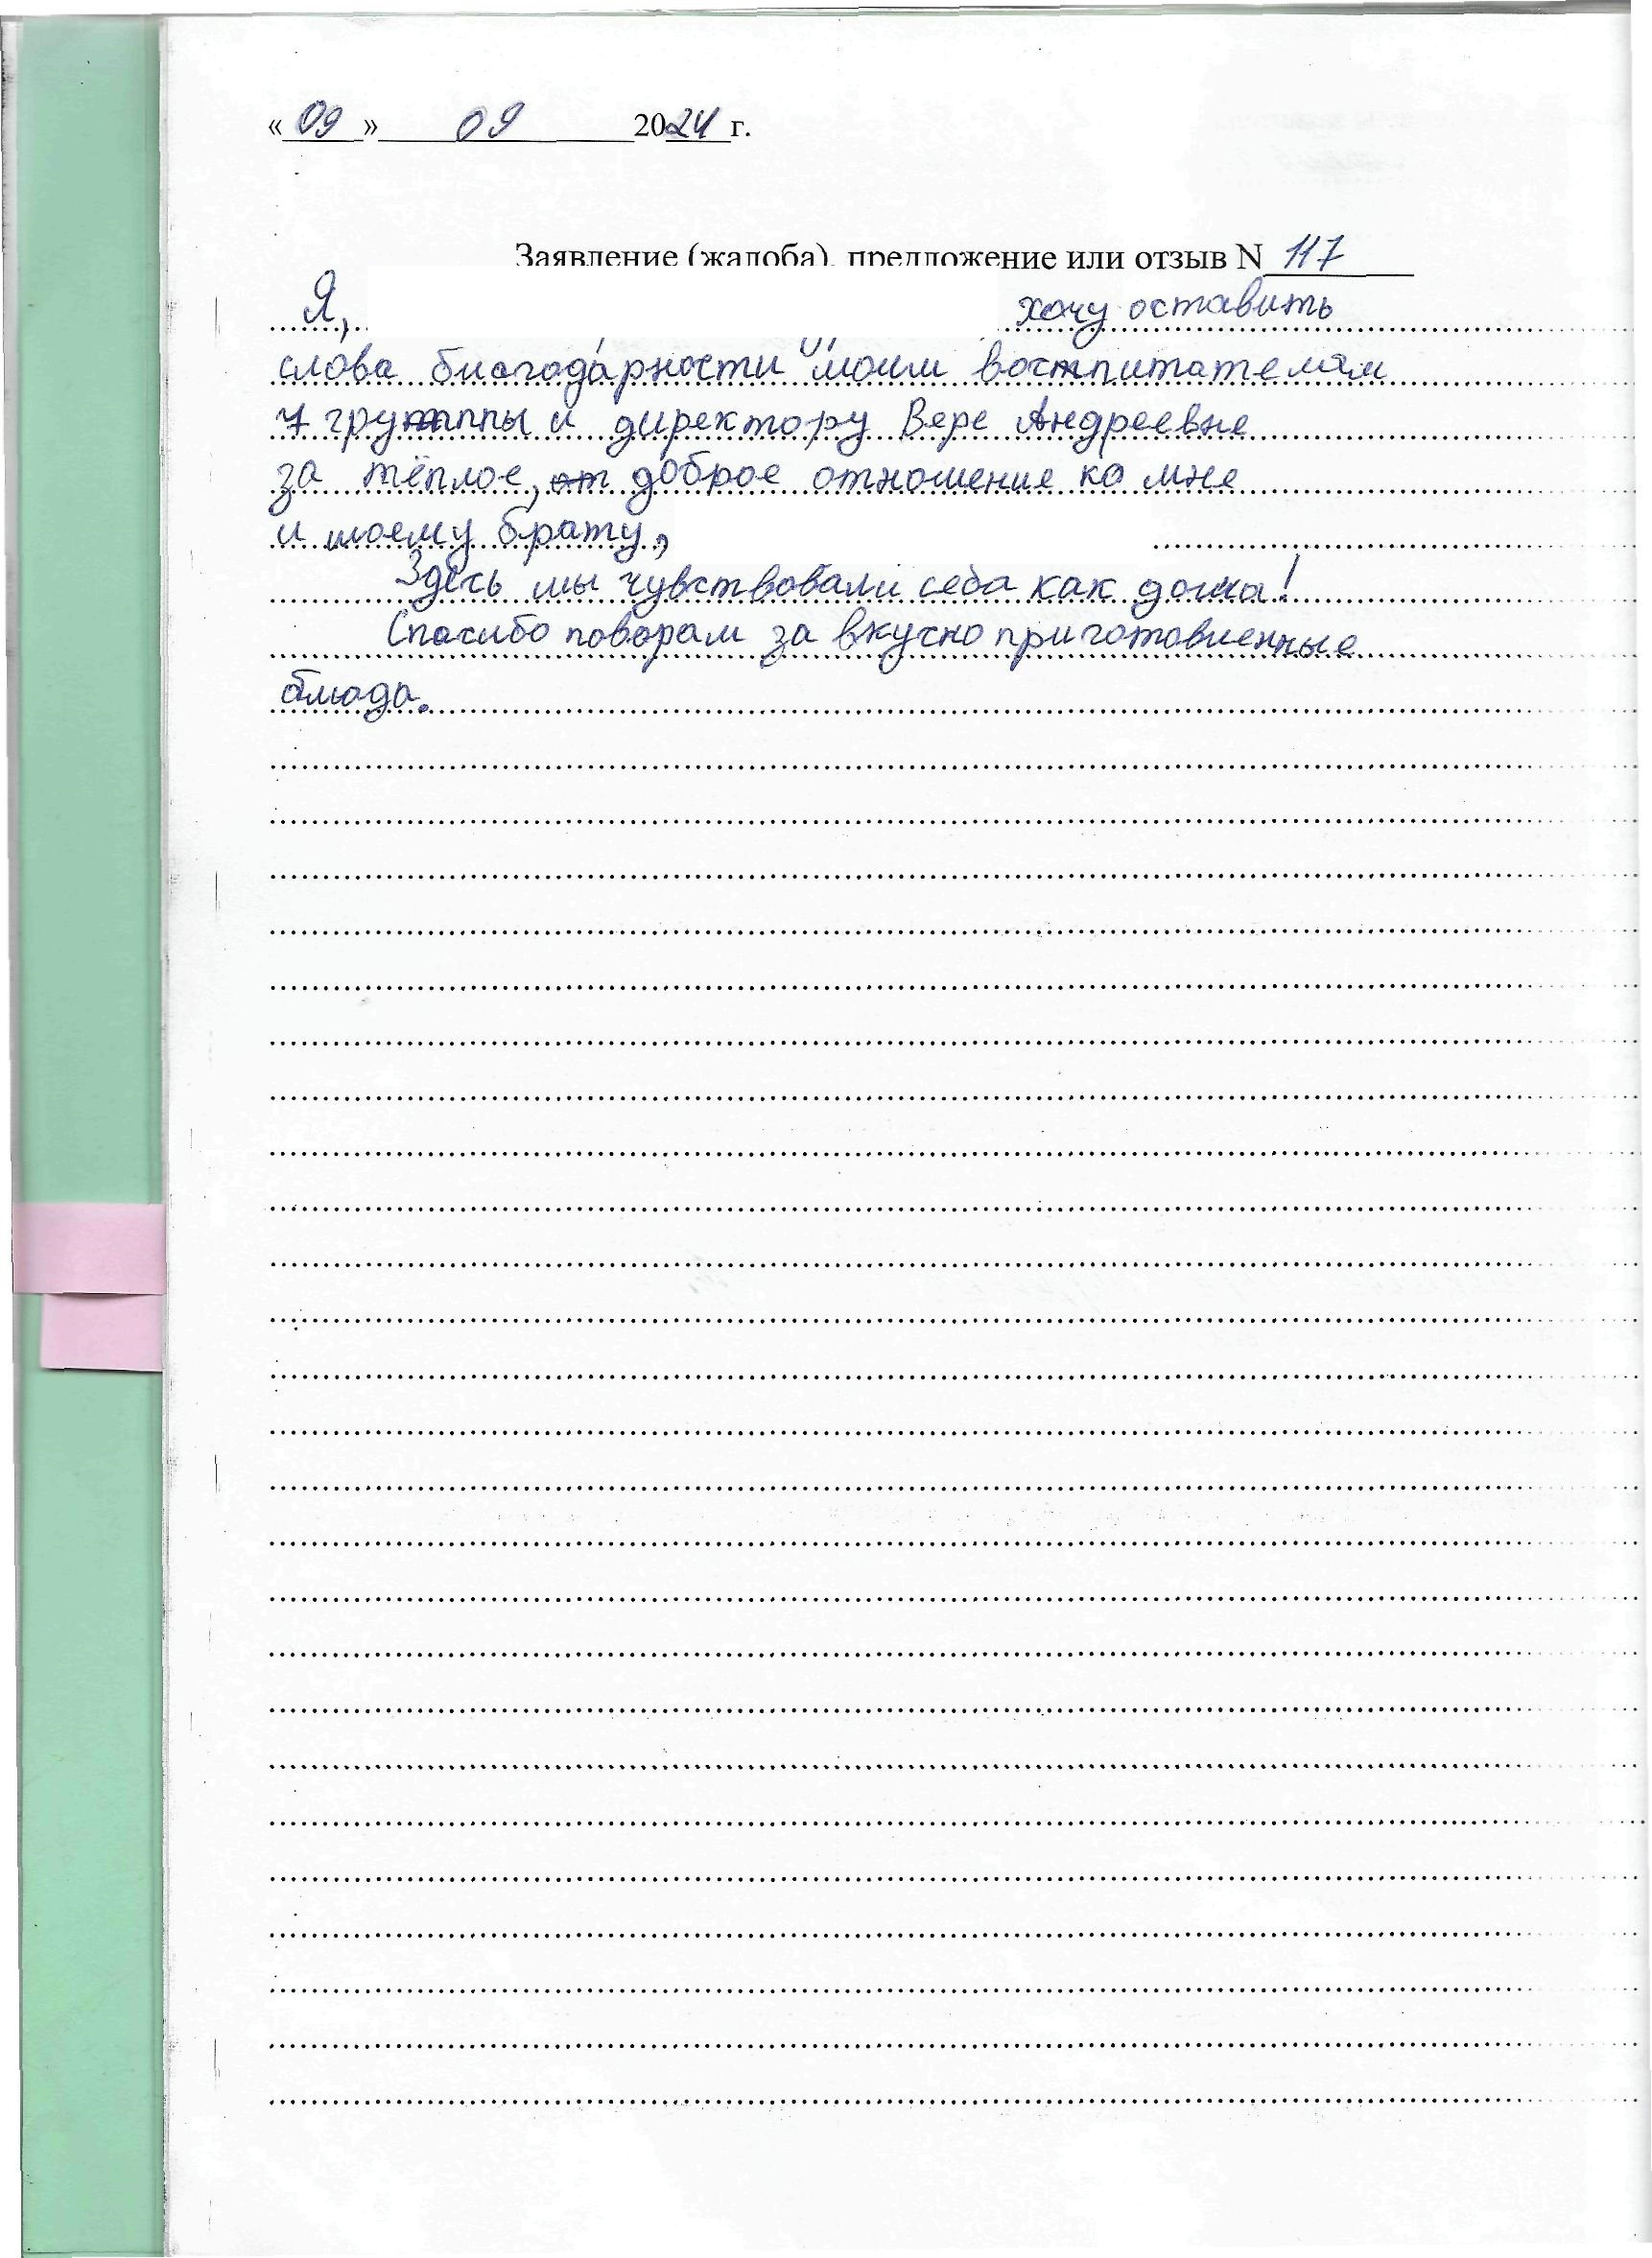 « 09 » 09 2024 г.
Заявление (жалоба), предложение или отзыв N 117
Я, хочу оставить
слова благодарности моим воспитателям
7 группы и директору Вере Андреевне
за тёплое, от доброе отношение ко мне
и моему брату,
Здесь мы чувствовали себя как дома!
Спасибо поварам за вкусно приготовленные
блюда.